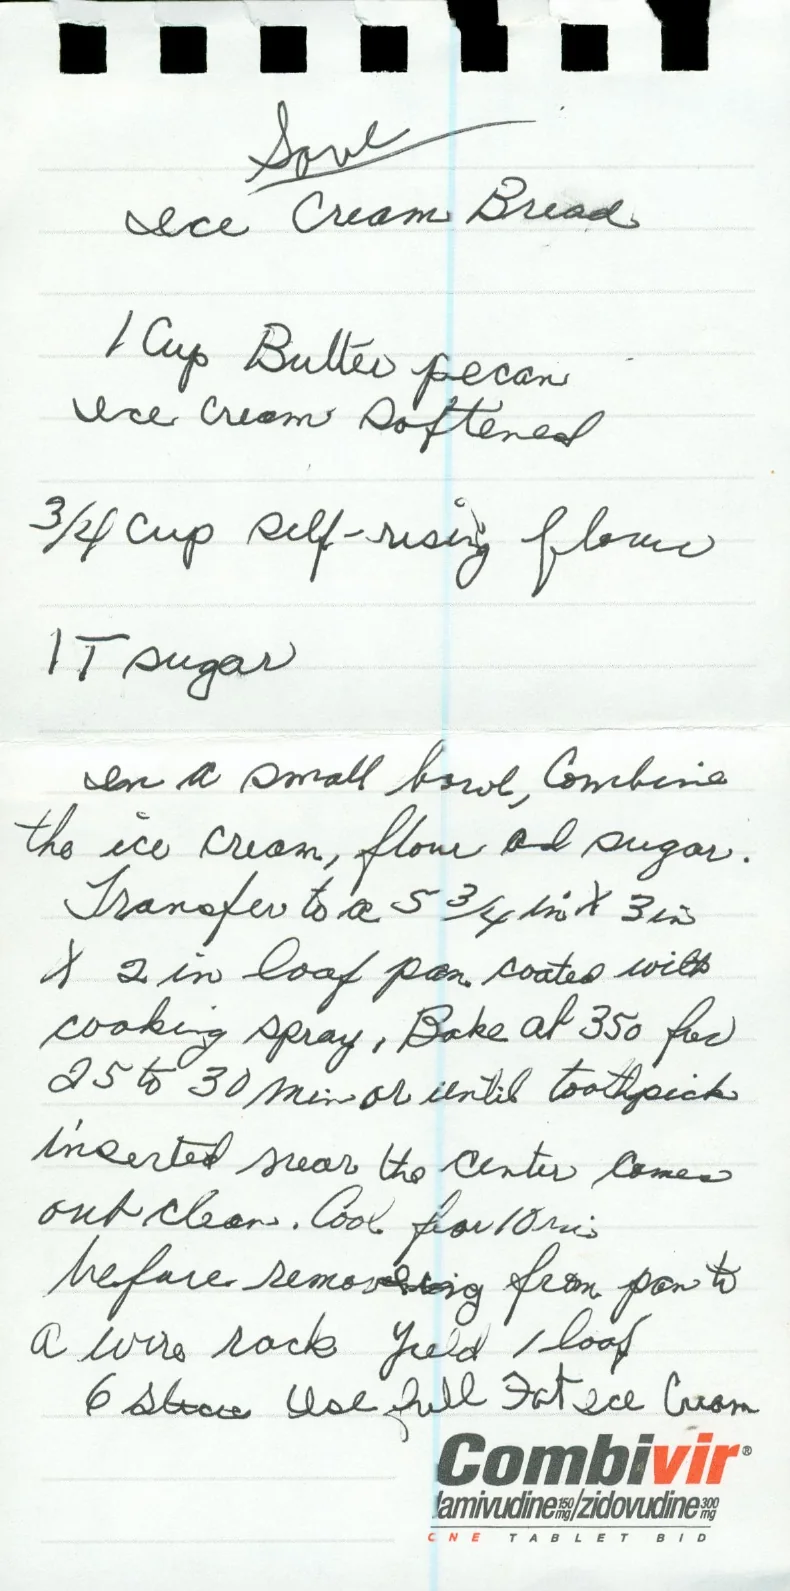 Save
Ice Cream Bread
1 Cup Butter pecan
Ice Cream Softened
3/4 Cup self-rising flour
1 T sugar
In a small bowl, Combine
the ice cream, flour ad sugar.
Transfer to a 5 3/4 in X 3 in
X 2 in loaf pan coated with
cooking spray, Bake at 350 for
25 to 30 min or until toothpick
inserted near the center comes
out clean. Cool for 10 min
before removing from pan to
a wire rack Yield 1 loaf
6 Slices Use full Fat Ice Cream
Combivir®
lamivudine 150 mg/zidovudine 300 mg
ONE TABLET BID